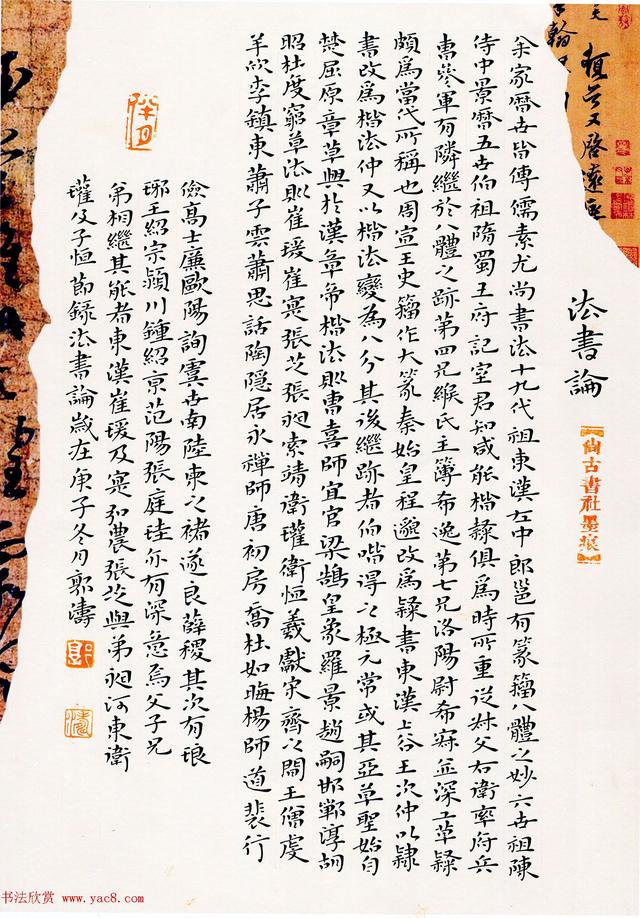 法書論
【尚古書社墨痕】
余家曆世皆傳儒素尤尚書法十九代祖東漢左中郎邕有篆籀八體之妙六世祖陳
侍中景曆五世伯祖隋蜀王府記室君知咸能楷隸俱為時所重從叔父右衛率府兵
曹參軍有隣繼於八體之跡第四兄緱氏主簿希逸第七兄洛陽尉希寂並深工草隸
頗為當代所稱也周宣王史籀作大篆秦始皇程邈改為隸書東漢上谷王次仲以隸
書改為楷法仲又以楷法變為八分其後繼跡者伯喈得之極元常或其亞草聖始自
楚屈原章草興於漢章帝楷法則曹喜師宜官梁鵠皇象羅景趙嗣邯鄲淳胡
昭杜度窮草法則崔瑗崔寔張芝張昶索靖衛瓘衛恒羲獻宋齊之間王僧虔
羊欣李鎮東蕭子雲蕭思話陶隱居永禪師唐初房喬杜如晦楊師道裴行
儉高士廉歐陽詢虞世南陸柬之褚遂良薛稷其次有琅
琊王紹宗潁川鍾紹京范陽張庭珪亦有深意焉父子兄
弟相繼其能者東漢崔瑗及寔弘農張芝與弟昶河東衛
瓘及子恒節錄法書論歲在庚子冬月郭濤
郭
濤
书法欣赏 www.yac8.com